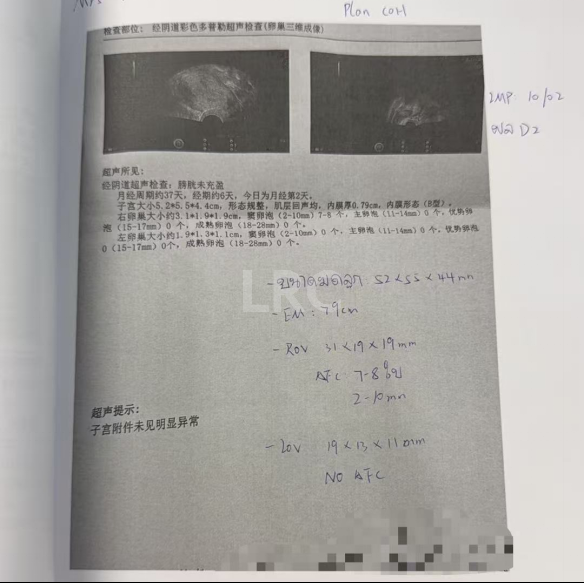 Plan COH
检查部位: 经阴道彩色多普勒超声检查(卵巢三维成像)
LMP 10/02
D2
超声所见:
经阴道超声检查, 膀胱未充盈
月经周期约37天, 经期约6天, 今日为月经第2天。
子宫大小5.2*5.5*4.4cm, 形态规整, 肌层回声均, 内膜厚0.79cm, 内膜形态 (B型)。
右卵巢大小约3.1*1.9*1.9cm, 窦卵泡 (2-10mm) 7-8 个, 主卵泡 (11-14mm) 0 个, 优势卵
泡 (15-17mm) 0 个, 成熟卵泡 (18-28mm) 0 个。
左卵巢大小约1.9*1.3*1.1cm, 窦卵泡 (2-10mm) 0 个, 主卵泡 (11-14mm) 0 个, 优势卵泡
(15-17mm) 0个, 成熟卵泡 (18-28mm) 0 个。
- ขนาดมดลูก : 52 x 55 x 44 mm
LRC
- EM : 79cm
- ROV 31 x 19 x 19 mm
AFC 7-8 ใบ
2-10 mm
超声提示:
子宫附件未见明显异常
- LOV 19 x 13 x 11 mm
NO AFC